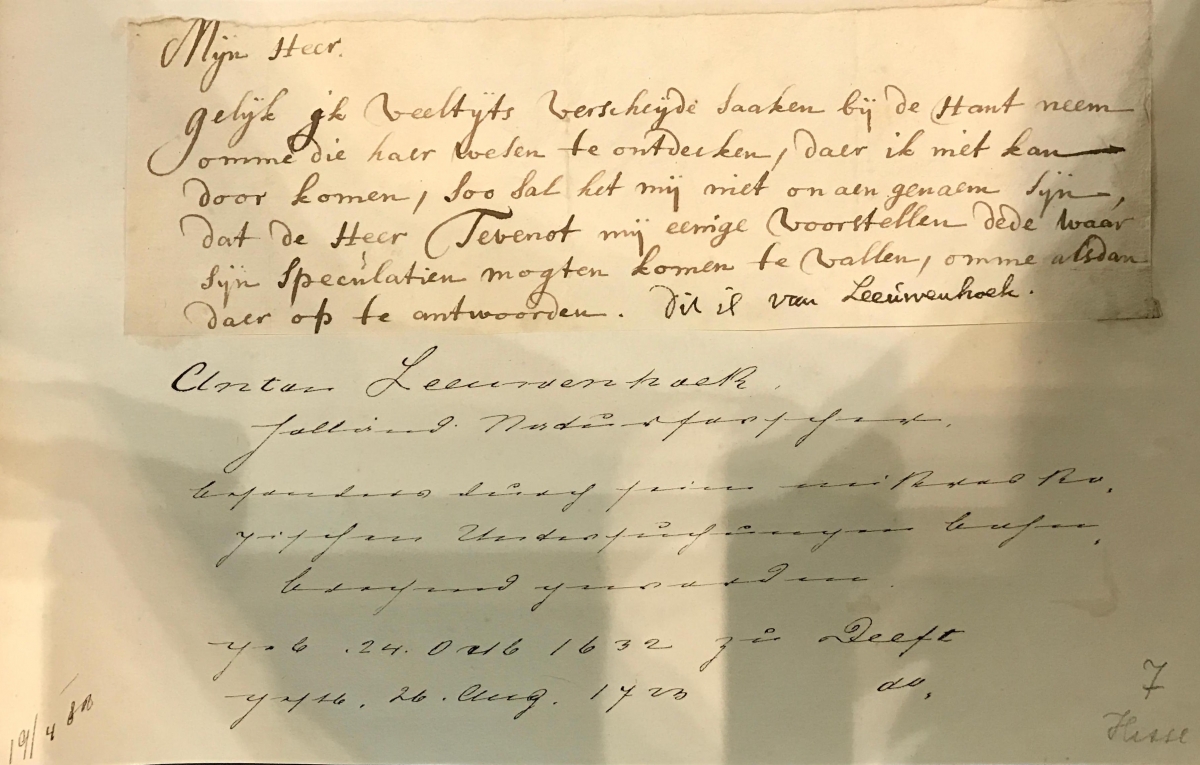 Mijn Heer.
gelijk ik veeltijts verscheijde saaken bij de Hant neem
omme die haer wesen te ontdecken, daer ik niet kan
door komen, soo sal het mij niet onaengenaem sijn,
dat de Heer Tevenot mij eenige voorstellen dede waar
sijn speculatien mogten komen te vallen, omme alsdan
daer op te antwoorden. Dit is van Leeuwenhoek.
Anton Leeuwenhoek.
holländ. Naturforscher.
besonders durch seine mikrosko,
pischen Untersuchungen bahn,
brechend geworden.
geb. 24. Octb 1632 zu Delft
gestb. 26. Aug. 1723 do,
7
Hesse
19/4